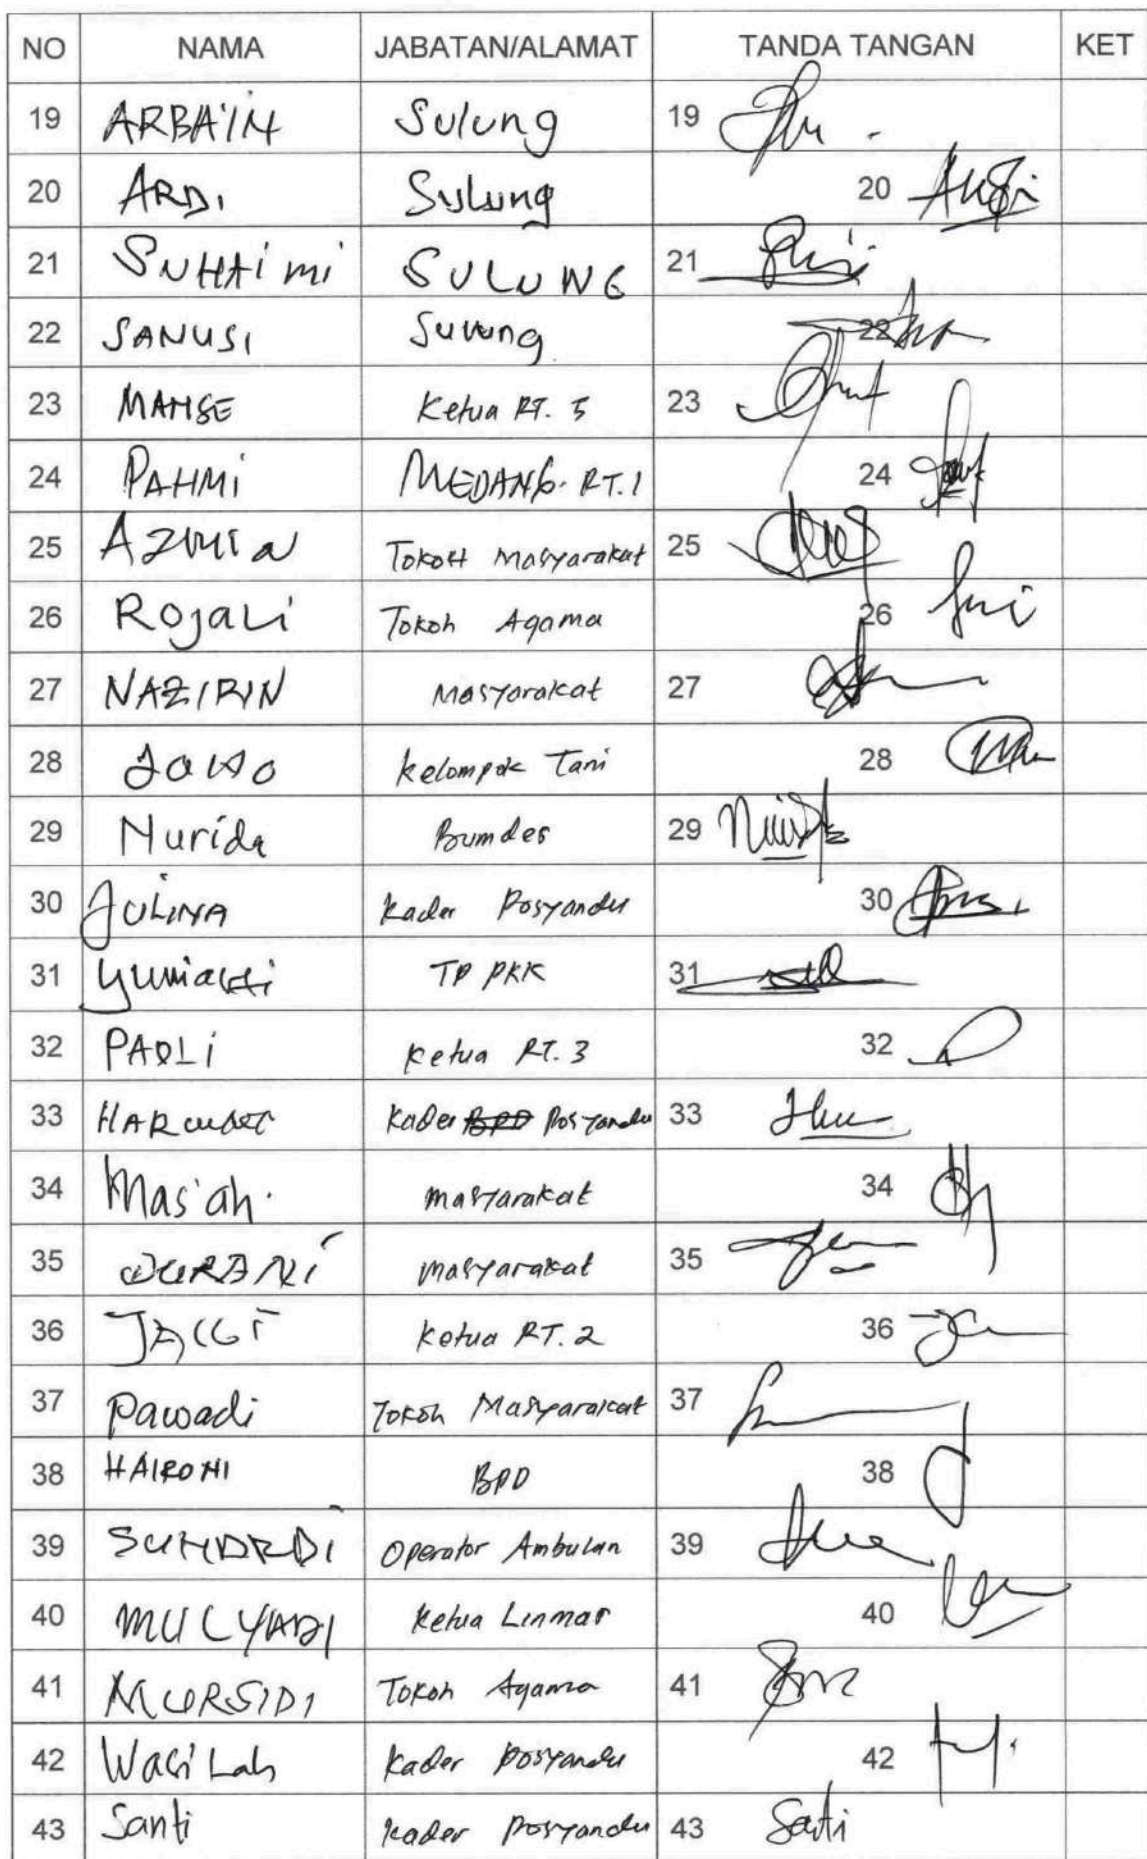 NO NAMA JABATAN/ALAMAT TANDA TANGAN KET
19 ARBA'IN Sulung 19
20 ARDI Sulung 20
21 SUHAimi SULUNG 21
22 SANUSI Sulung 22
23 MAHSE Ketua RT. 5 23
24 PAHMi MEDANG. RT.1 24
25 Tokoh Masyarakat 25
26 Rojali Tokoh Agama 26
27 NAZIRIN Masyarakat 27
28 Kelompok Tani 28
29 Nurida Bumdes 29
30 JULINA Kader Posyandu 30
31 TP PKK 31
32 Ketua RT. 3 32
33 Kader BPD Posyandu 33
34 Mas'ah. masyarakat 34
35 masyarakat 35
36 Ketua RT. 2 36
37 Pawadi Tokoh Masyarakat 37
38 HAIRONI BPD 38
39 SUHARDI Operator Ambulan 39
40 MULYADI Ketua Linmas 40
41 MURSIDI Tokoh Agama 41
42 Wasilah Kader Posyandu 42
43 Santi Kader Posyandu 43 Santi